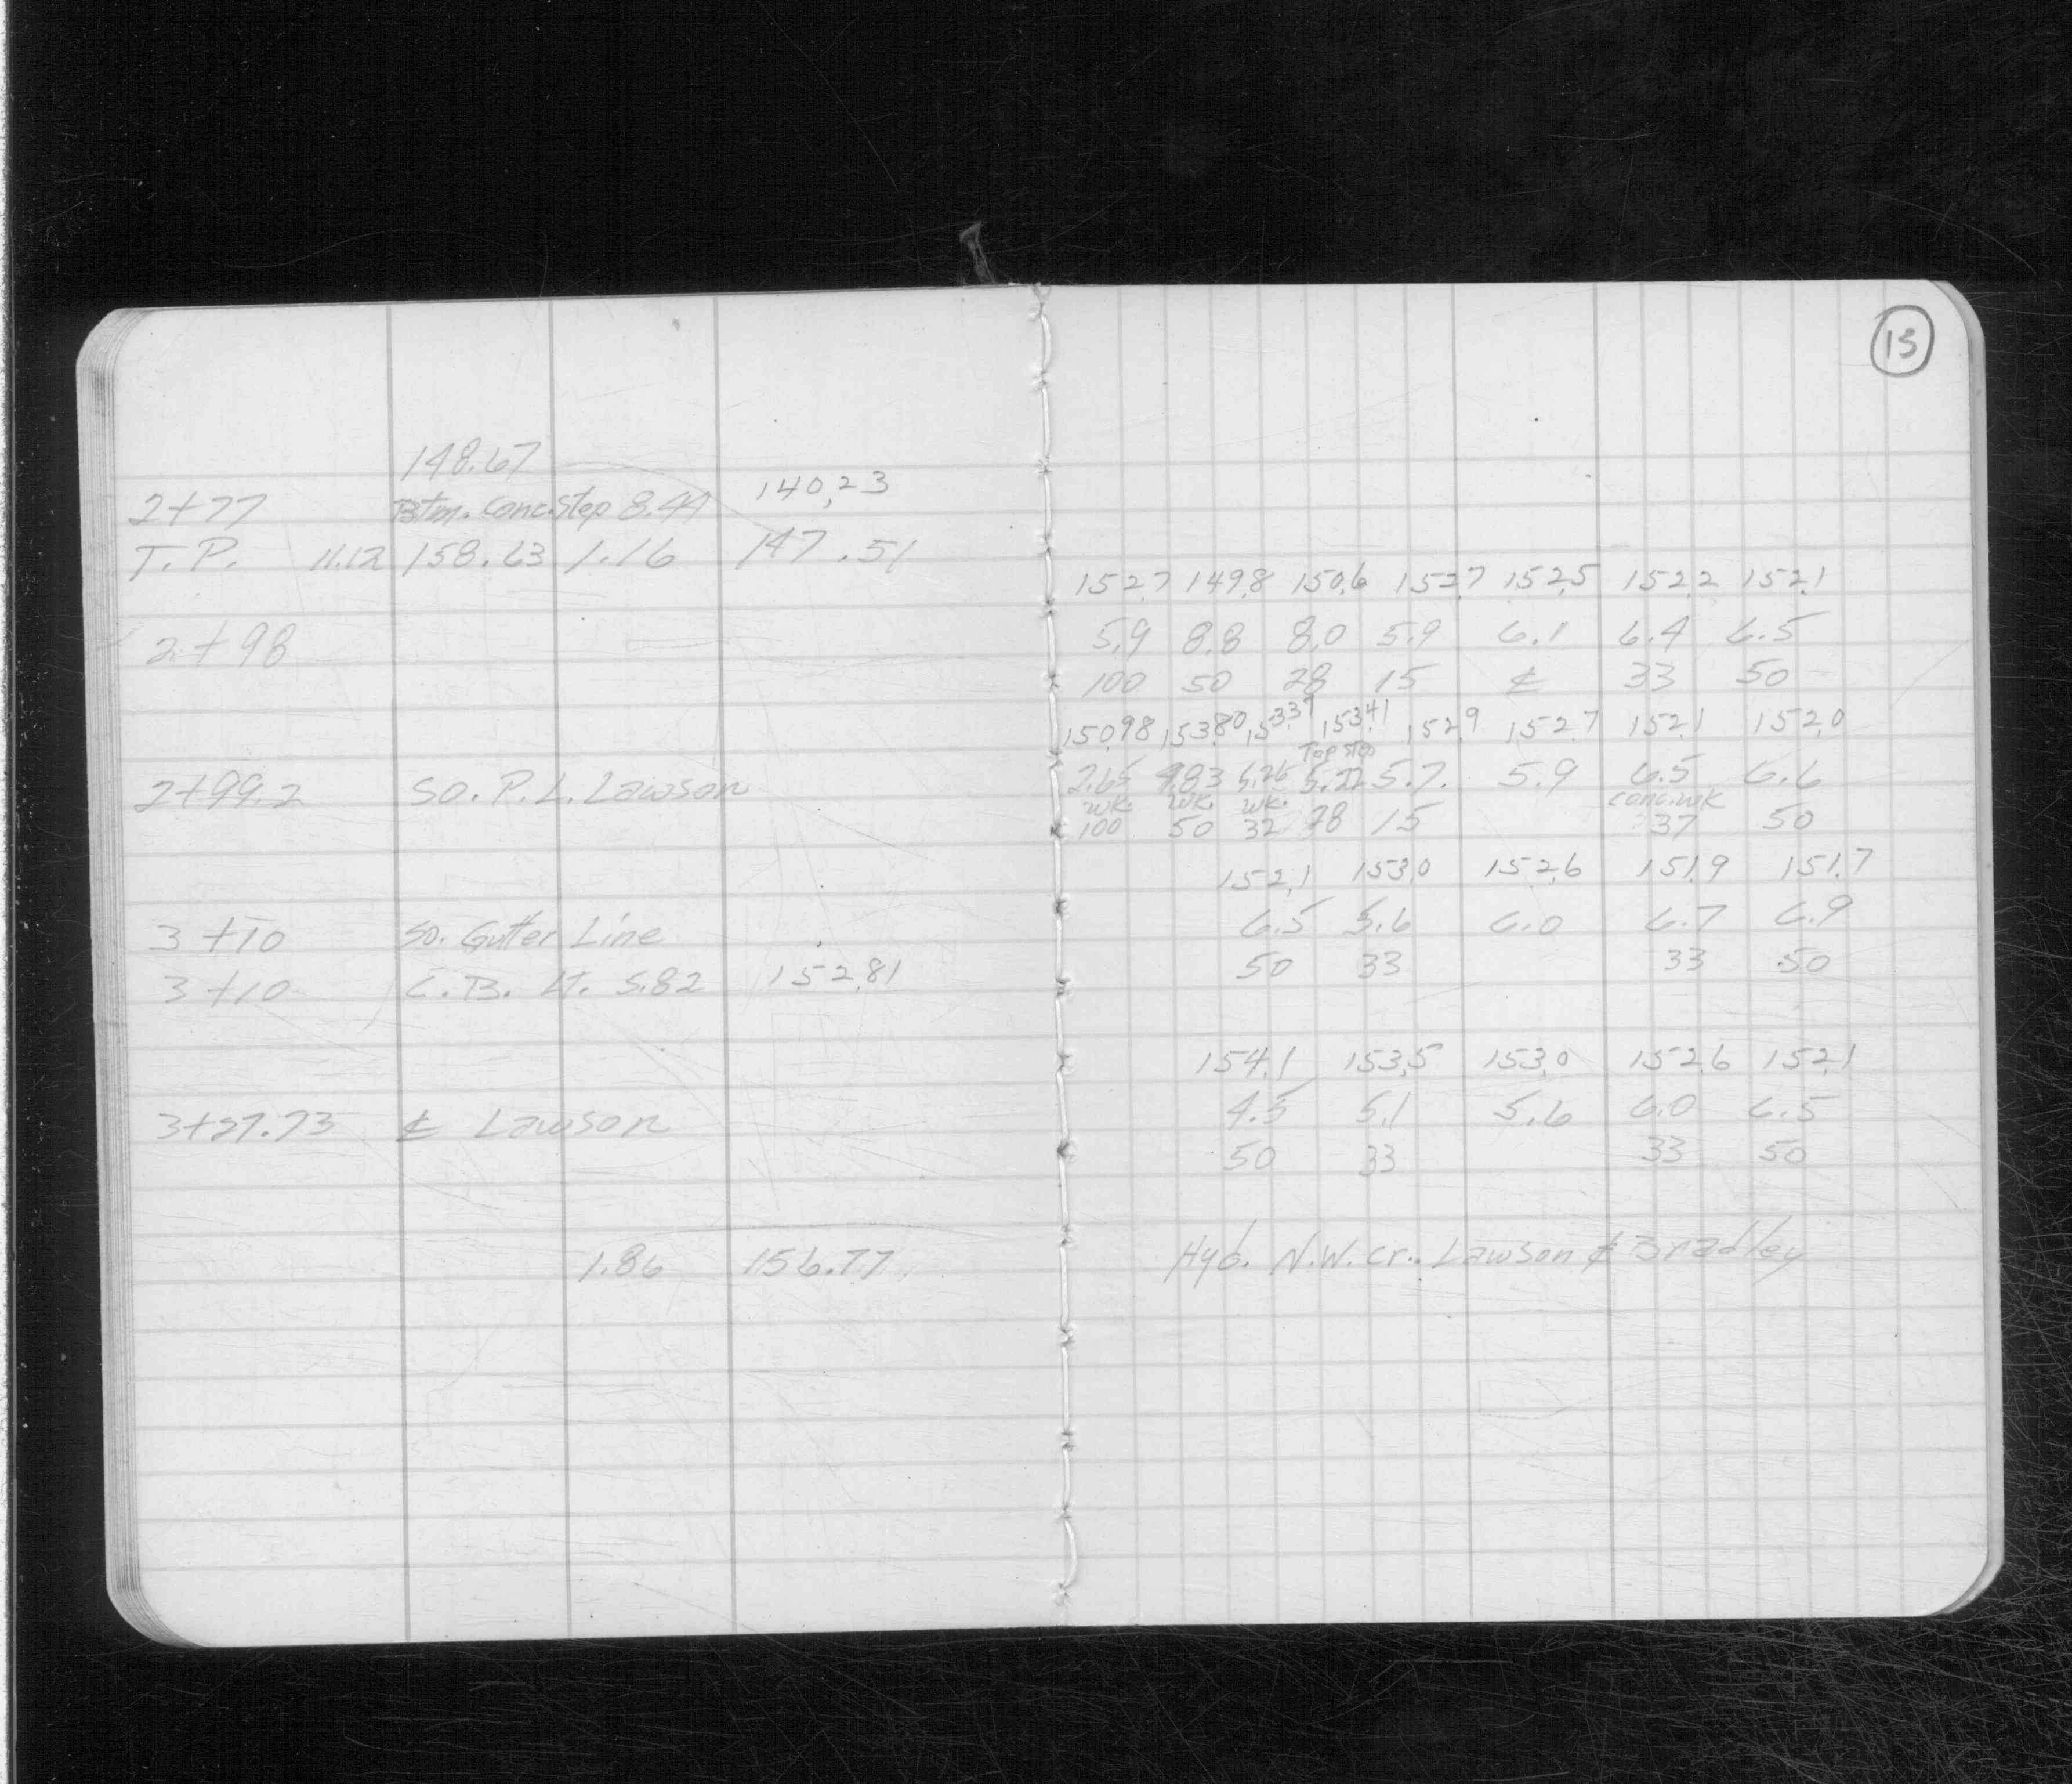 15
148.67
2+77 Btm. Conc. Step 8.44 140.23
T.P. 11.12 158.63 1.16 147.51
152.7 149.8 150.6 152.7 152.5 152.2 152.1
2+98 5.9 8.8 8.0 5.9 6.1 6.4 6.5
100 50 28 15 ℄ 33 50
150.98 153.80 153.37 153.41 152.9 152.7 152.1 152.0
Top Step
2+99.2 So. P.L. Lawson 5.26 5.22 5.7 5.9 6.5 6.6
wk. wk. wk. conc. wk
100 50 32 28 15 37 50
152.1 153.0 152.6 151.9 151.7
3+10 So. Gutter Line 6.5 5.6 6.0 6.7 6.9
50 33 33 50
3+10 C.B. Lt. 5.82 152.81
154.1 153.5 153.0 152.6 152.1
3+27.73 ℄ Lawson 4.5 5.1 5.6 6.0 6.5
50 33 33 50
1.86 156.77 Hyd. N.W. cr. Lawson & Bradley